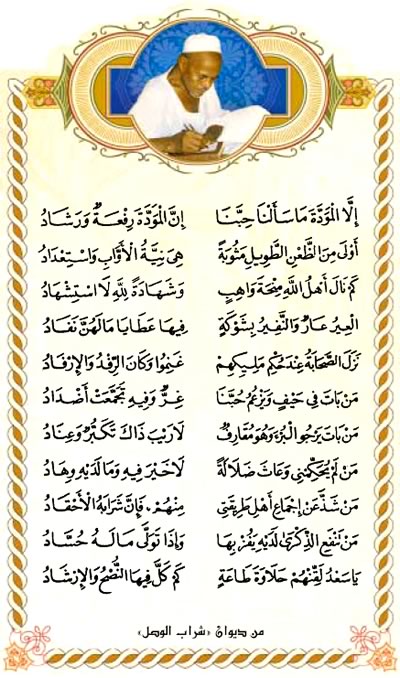 إِلَّا الْمَوَدَّةَ مَا سَأَلْنَا حِبَّنَا إِنَّ الْمَوَدَّةَ رِفْعَةٌ وَرَشَادُ
أَوْلَى مِنَ الظَّعْنِ الطَّوِيلِ مَثُوبَةً هِيَ نِيَّةُ الْأَوَّابِ وَاسْتِعْدَادُ
كَمْ نَالَ أَهْلُ اللَّهِ مِنْحَةَ وَاهِبٍ وَشَهَادَةً لِلَّهِ لَا اسْتِشْهَادُ
الْعِيرُ عَارٌ وَالنَّفِيرُ بِشَوْكَةٍ فِيهَا عَطَايَا مَا لَهُنَّ نَفَادُ
نَزَلَ الصَّحَابَةُ عِنْدَ حُكْمِ مَلِيكِهِمْ غَنِمُوا وَكَانَ الرِّفْدُ وَالْإِرْفَادُ
مَنْ بَاتَ فِي حَيْفٍ وَيَزْعُمُ حُبَّنَا غِرٌّ وَفِيهِ تَجَمَّعَتْ أَضْدَادُ
مَنْ بَاتَ يَرْجُو الْبُرْءَ وَهُوَ مُقَارِفٌ لَا رَيْبَ ذَاكَ تَكَبُّرٌ وَعِنَادُ
مَنْ لَمْ يُحَكِّمْنِي وَعَاثَ ضَلَالَةً لَا خَيْرَ فِيهِ وَمَا لَدَيْهِ وِهَادُ
مَنْ شَذَّ عَنْ إِجْمَاعِ أَهْلِ طَرِيقَتِي مِنْهُمْ، فَإِنَّ شَرَابَهُ الْأَحْقَادُ
مَنْ تَنْفَعِ الذِّكْرَى لَدَيْهِ يَفُزْ بِهَا وَإِذَا تَوَلَّى مَا لَهُ حُسَّادُ
يَا سَعْدُ لَقِّنْهُمْ حَلَاوَةَ طَاعَةٍ كَمْ كَلَّ فِيهَا النُّصْحُ وَالْإِرْشَادُ
من ديوان «شراب الوصل»